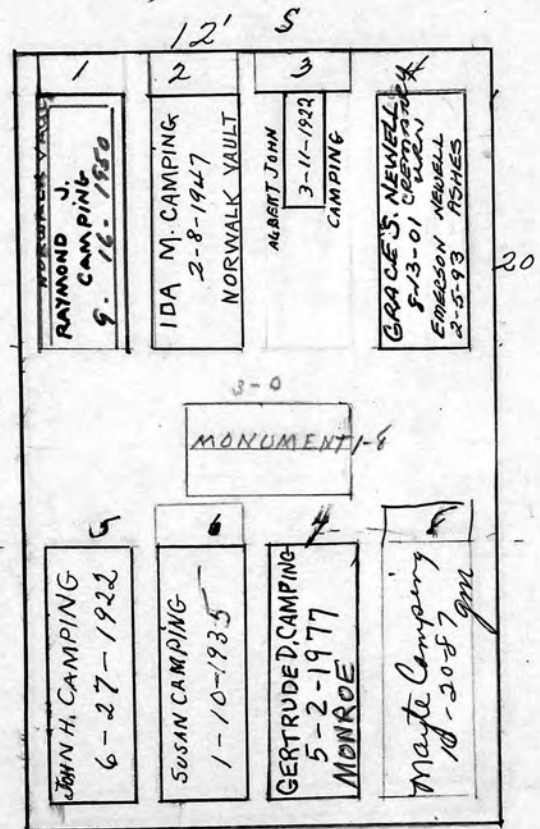 12' S
1
2
3
4
NORWALK VAULT
RAYMOND J.
CAMPING
9-16-1950
IDA M. CAMPING
2-8-1947
NORWALK VAULT
ALBERT JOHN
3-11-1922
CAMPING
GRACE S. NEWELL
8-13-01 CREMATORY
URN
EMERSON NEWELL
2-5-93 ASHES
20
3-0
MONUMENT 1-8
5
6
JOHN H. CAMPING
6-27-1922
SUSAN CAMPING
1-10-1935
GERTRUDE D. CAMPING
5-2-1977
MONROE
Mayte Camping
-20-87
gm